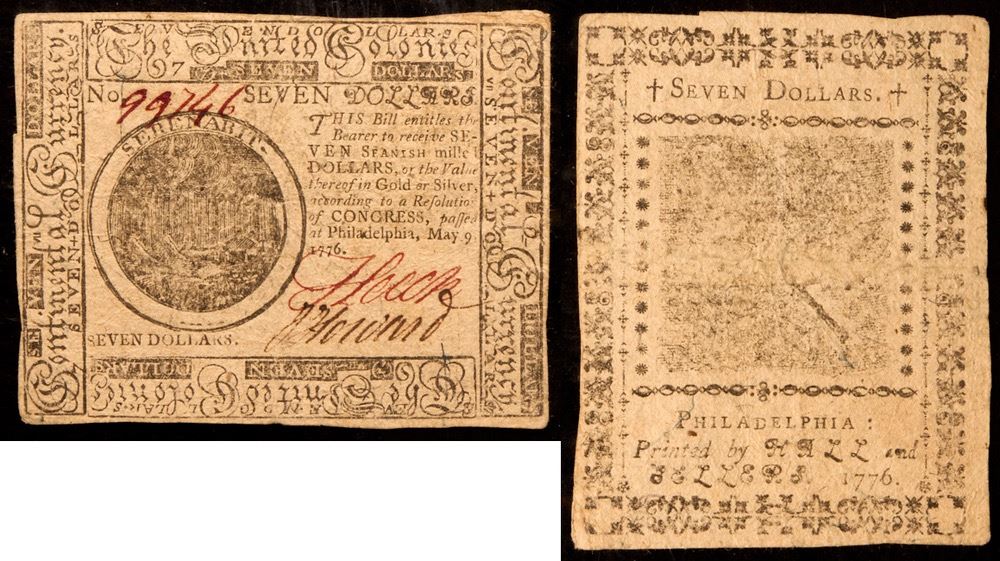 SEVEN DOLLARS
The United Colonies
SEVEN DOLLARS
Continental Currency.
SEVEN DOLLARS
Continental Currency
SEVEN DOLLARS
No 99746 SEVEN DOLLARS.
SERENABIT
THIS Bill entitles the
Bearer to receive SE-
VEN SPANISH mille'
DOLLARS, or the Value
thereof in Gold or Silver,
according to a Resolutio
of CONGRESS, passed
at Philadelphia, May 9
1776.
Howard
SEVEN DOLLARS.
SEVEN DOLLARS
The United Colonies
† SEVEN DOLLARS. †
PHILADELPHIA:
Printed by HALL and
SELLERS. 1776.